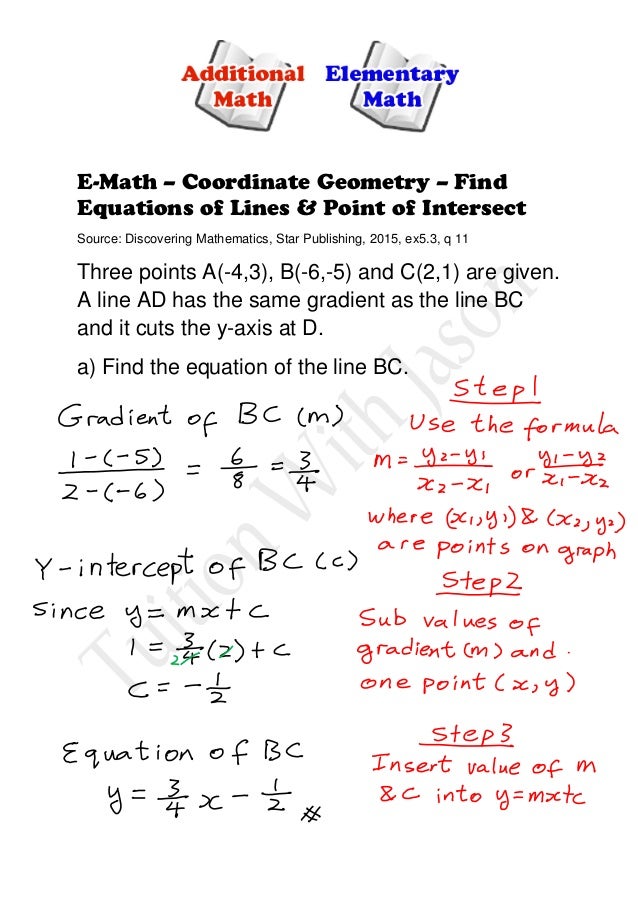 Additional Elementary
Math Math
E-Math – Coordinate Geometry – Find
Equations of Lines & Point of Intersect
Source: Discovering Mathematics, Star Publishing, 2015, ex5.3, q 11
Three points A(-4,3), B(-6,-5) and C(2,1) are given.
A line AD has the same gradient as the line BC
and it cuts the y-axis at D.
a) Find the equation of the line BC.
Gradient of BC (m)
1-(-5) / 2-(-6) = 6/8 = 3/4
Step 1
Use the formula
m = y2-y1 / x2-x1 or y1-y2 / x1-x2
where (x1,y1) & (x2,y2)
are points on graph
Y-intercept of BC (c)
Since y = mx + c
1 = 3/4 (2) + c
2
c = - 1/2
Step 2
Sub values of
gradient (m) and
one point (x,y)
Equation of BC
y = 3/4 x - 1/2 #
Step 3
Insert value of m
& c into y=mx+c
Tuition With Jason